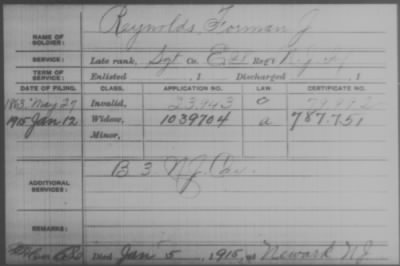 NAME OF SOLDIER: Reynolds, Forman J
SERVICE: Late rank, Sgt Co. Reg't
TERM OF SERVICE: Enlisted , 1 Discharged , 1
DATE OF FILING. CLASS. APPLICATION NO. LAW. CERTIFICATE NO.
1863 May 27 Invalid, 23943 C 79,972
1915 Jan 12 Widow, 1039704 a 787.751
Minor,
ADDITIONAL SERVICES: B 3. N.J. Cav.
REMARKS:
Died Jan 5, 1915, at Newark NJ